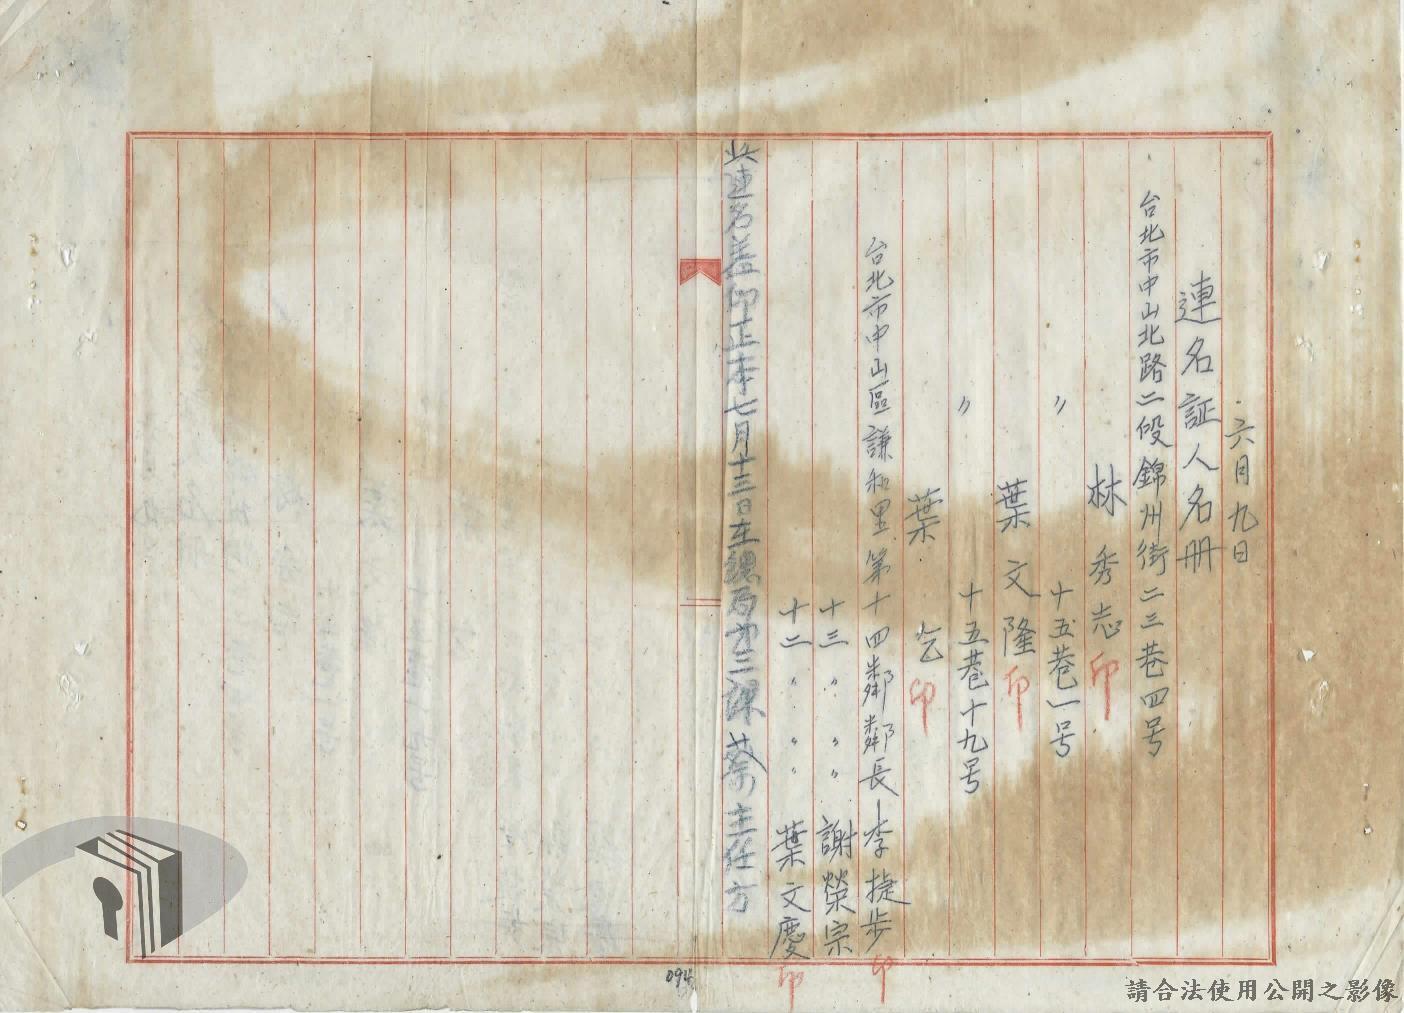 六月九日
連名証人名册
台北市中山北路二段錦州街二三巷四号
林秀志印
〃 十五巷一号
葉文隆印
〃 十五巷十九号
葉乞印
台北市中山區謙和里第十四鄰鄰長 李捷步印
十三〃〃〃 謝榮宗
十二〃〃〃 葉文慶印
連名盖印正本七月十三日在鐵局第三課蔡主任方
094
請合法使用公開之影像